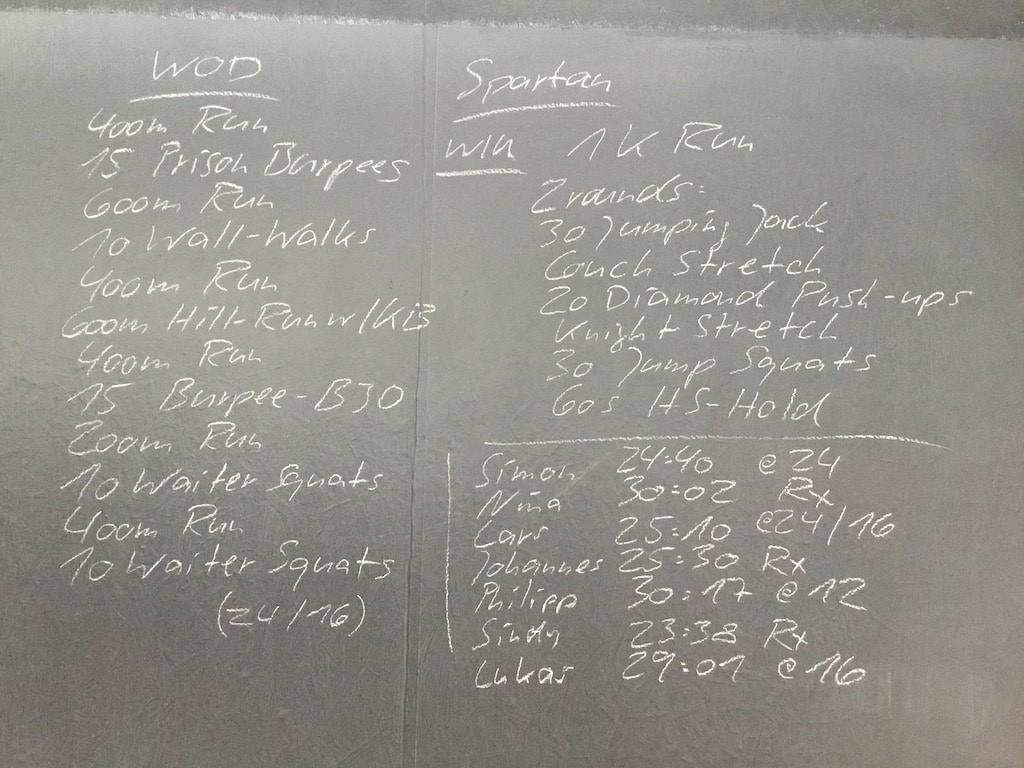 WOD
400m Run
15 Prison Burpees
600m Run
10 Wall-Walks
400m Run
600m Hill-Run w/KB
400m Run
15 Burpee-BJO
200m Run
10 Waiter Squats
400m Run
10 Waiter Squats
(24/16)
Spartan
WU 1K Run
2 rounds:
30 Jumping Jack
Couch Stretch
20 Diamond Push-ups
Knight Stretch
30 Jump Squats
60s HS-Hold
Simon 24:40 @ 24
Nina 30:02 Rx
Lars 25:10 @24/16
Johannes 25:30 Rx
Philipp 30:17 @ 12
Sindy 23:38 Rx
Lukas 29:01 @ 16